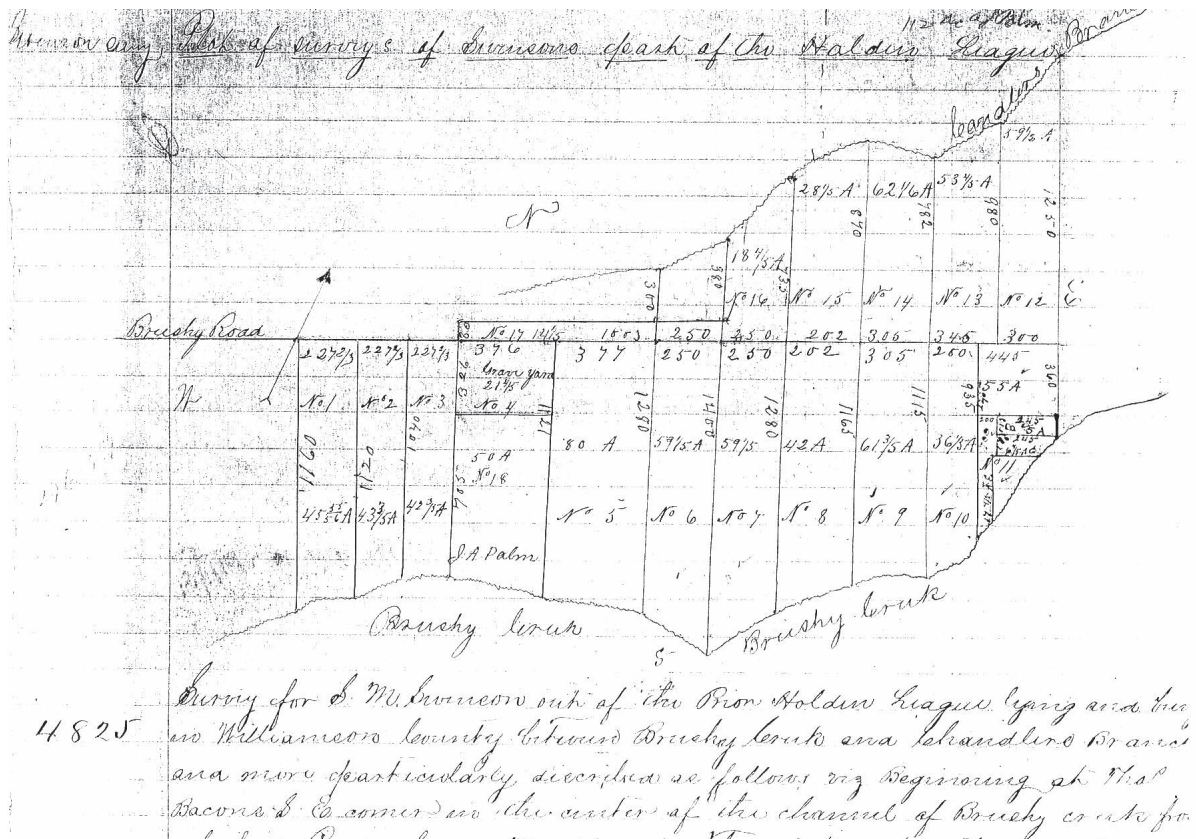 112 a of Palm.
Plot of surveys of Swensons part of the Holden League
Chandlers Bran
59 1/5 A
28 4/5 A 62 1/6 A 53 4/5 A
870 782 980 1250
N
18 4/5 A
300 380 735
No 16 No 15 No 14 No 13 No 12 E
Brushy Road
80 No 17 14 1/5 1003 250 250 202 306 345 300
227 2/3 227 2/3 227 2/3 376 377 250 250 202 305 260 445
Grave yard
21 4/5
326
W No 1 No 2 No 3 No 4
1121 1280 1400 1280 1165 1115 935 55 A 360
1160 1120 1040
50 A
No 18
705
80 A 59 1/5 A 59 1/5 42 A 61 3/5 A 36 4/5 A
245
245
No 11
45 55/56 A 43 3/5 A 42 3/5 A
No 5 No 6 No 7 No 8 No 9 No 10
J A Palm
Brushy Creek
Brushy Creek
S
Survey for S. M. Swenson out of the Prior Holden League lying and being
4825
in Williamson County between Brushy Creek and Chandlers Branch
and more particularly described as follows viz Beginning at Thos
Bacons S E corner in the center of the channel of Brushy creek from